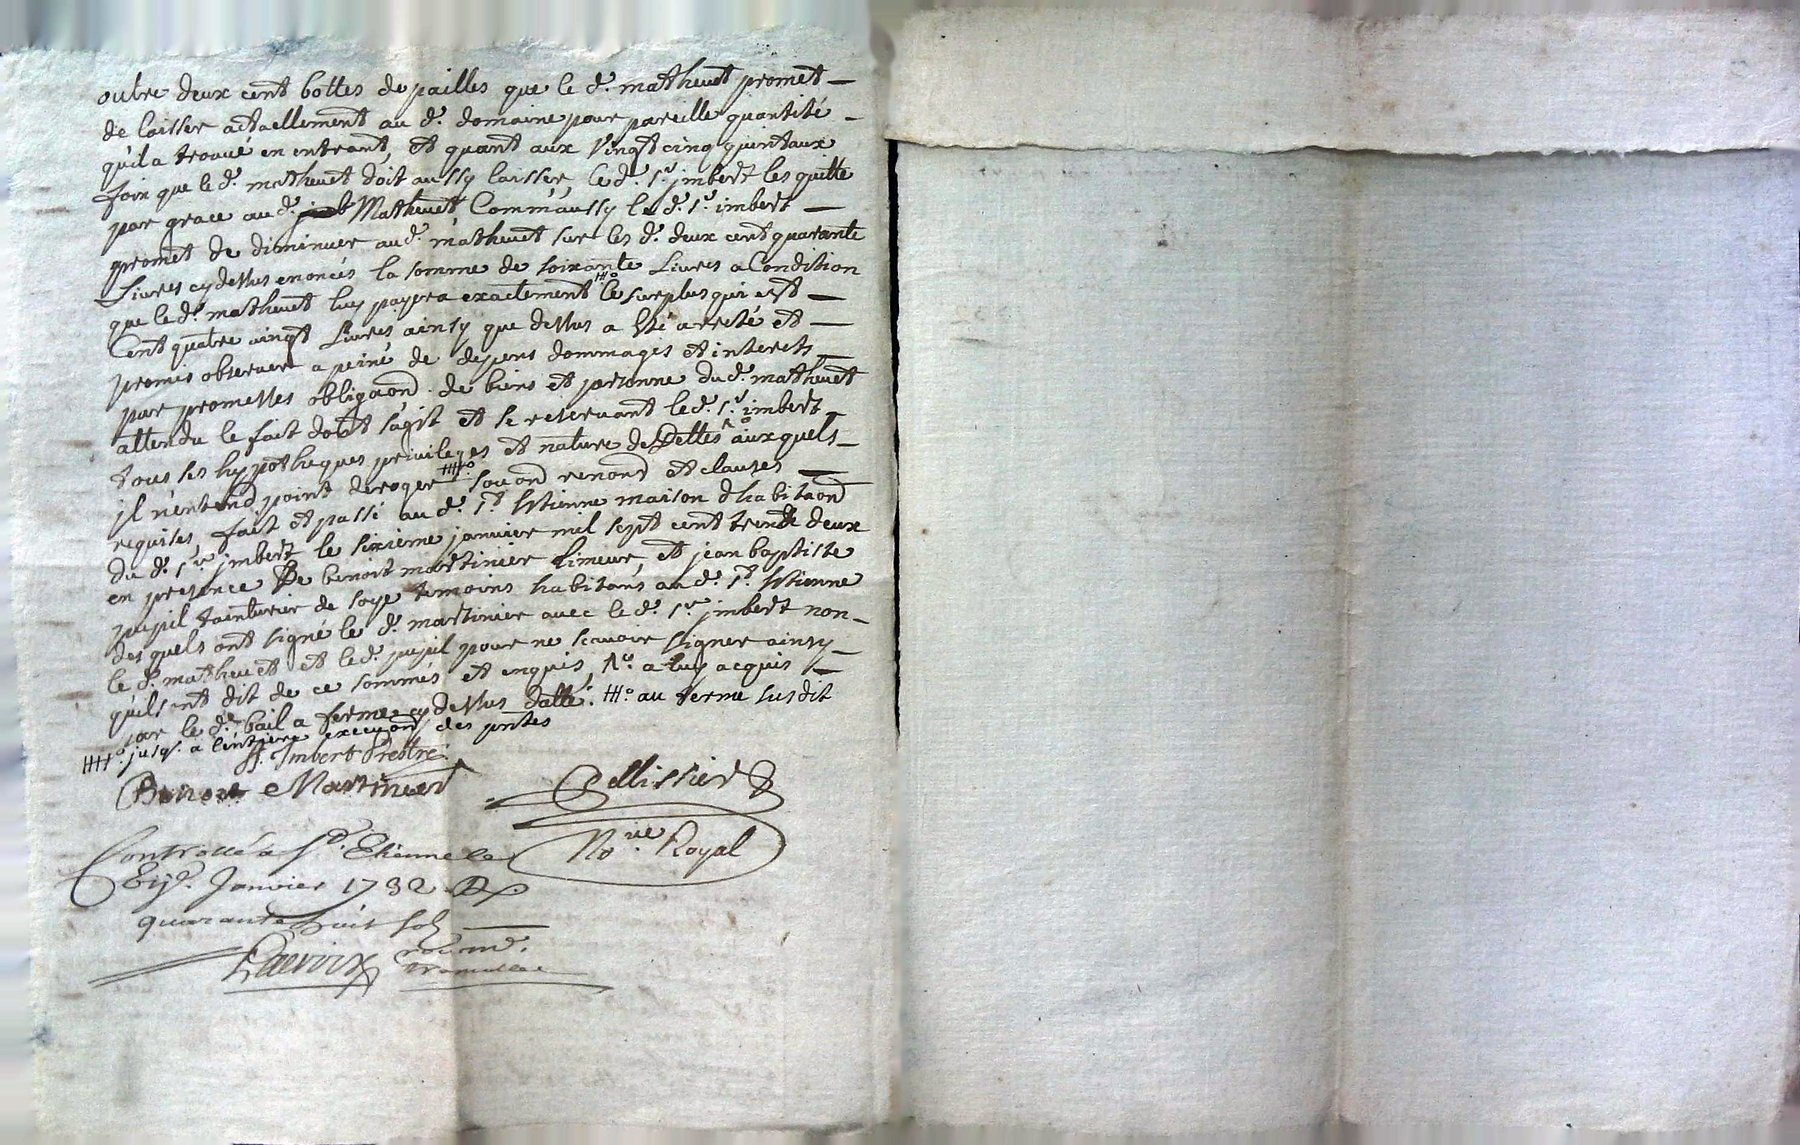 outre deux cent bottes de pailles que le d.^t mathevet promet
de laisser actuellement au d.^t domaine pour pareille quantité
qu'il a trouvé en entrant, et quant aux vingt cinq quintaux
foin que le d.^t mathevet doit aussy laisser, le d.^t s.^r jmbert les quitte
par grace au d.^t Mathevet, Comm'aussy le d.^t s.^r imbert
promet de diminuer au d.^t mathevet sur les d.^t deux cent quarante
Livres cy dessus enoncés la somme de soixante Livres a Condition
que le d.^t mathevet luy payera exactement ###° le surplus qui est
Cent quatre vingt Livres ainsy que dessus a esté arresté et
promis observer a peine de depens dommages et interets
par promesses obligaõn de biens et personne du d.^t mathevet
attendu le fait dont s'agit et se reservant le d.^t s.^r imbert
tous ses hypotheques privileges et nature de Dettes auxquels
jl n'entend point deroger ####° souond renond et clauses
requises, fait et passé au d.^t s.^t Estienne maison d'habitaõn
du d.^t s.^r jmbert le sixieme janvier mil sept cent trente deux
en presence de benoit martinier limeur, et jean baptiste
pupil tainturier de soye temoins habitans au d.^t s.^t Estienne
des quels ont signé le d.^t martinier avec le d.^t s.^r jmbert non
le d.^t mathevet et le d.^t pupil pour ne scavoir signer ainsy
qu'ils ont dit de ce sommés et enquis, a luy acquis
par le d.^t bail a ferme cy dessus datté. ###° au terme susdit
####° jusq. a l'entiere execuõn des pntes
Imbert Prestre
Benoit Martinier
Pellissier
No.^re Royal
Controllé a S.^t Etienne le
Janvier 1732 R
quarante huit sols
Lacroix